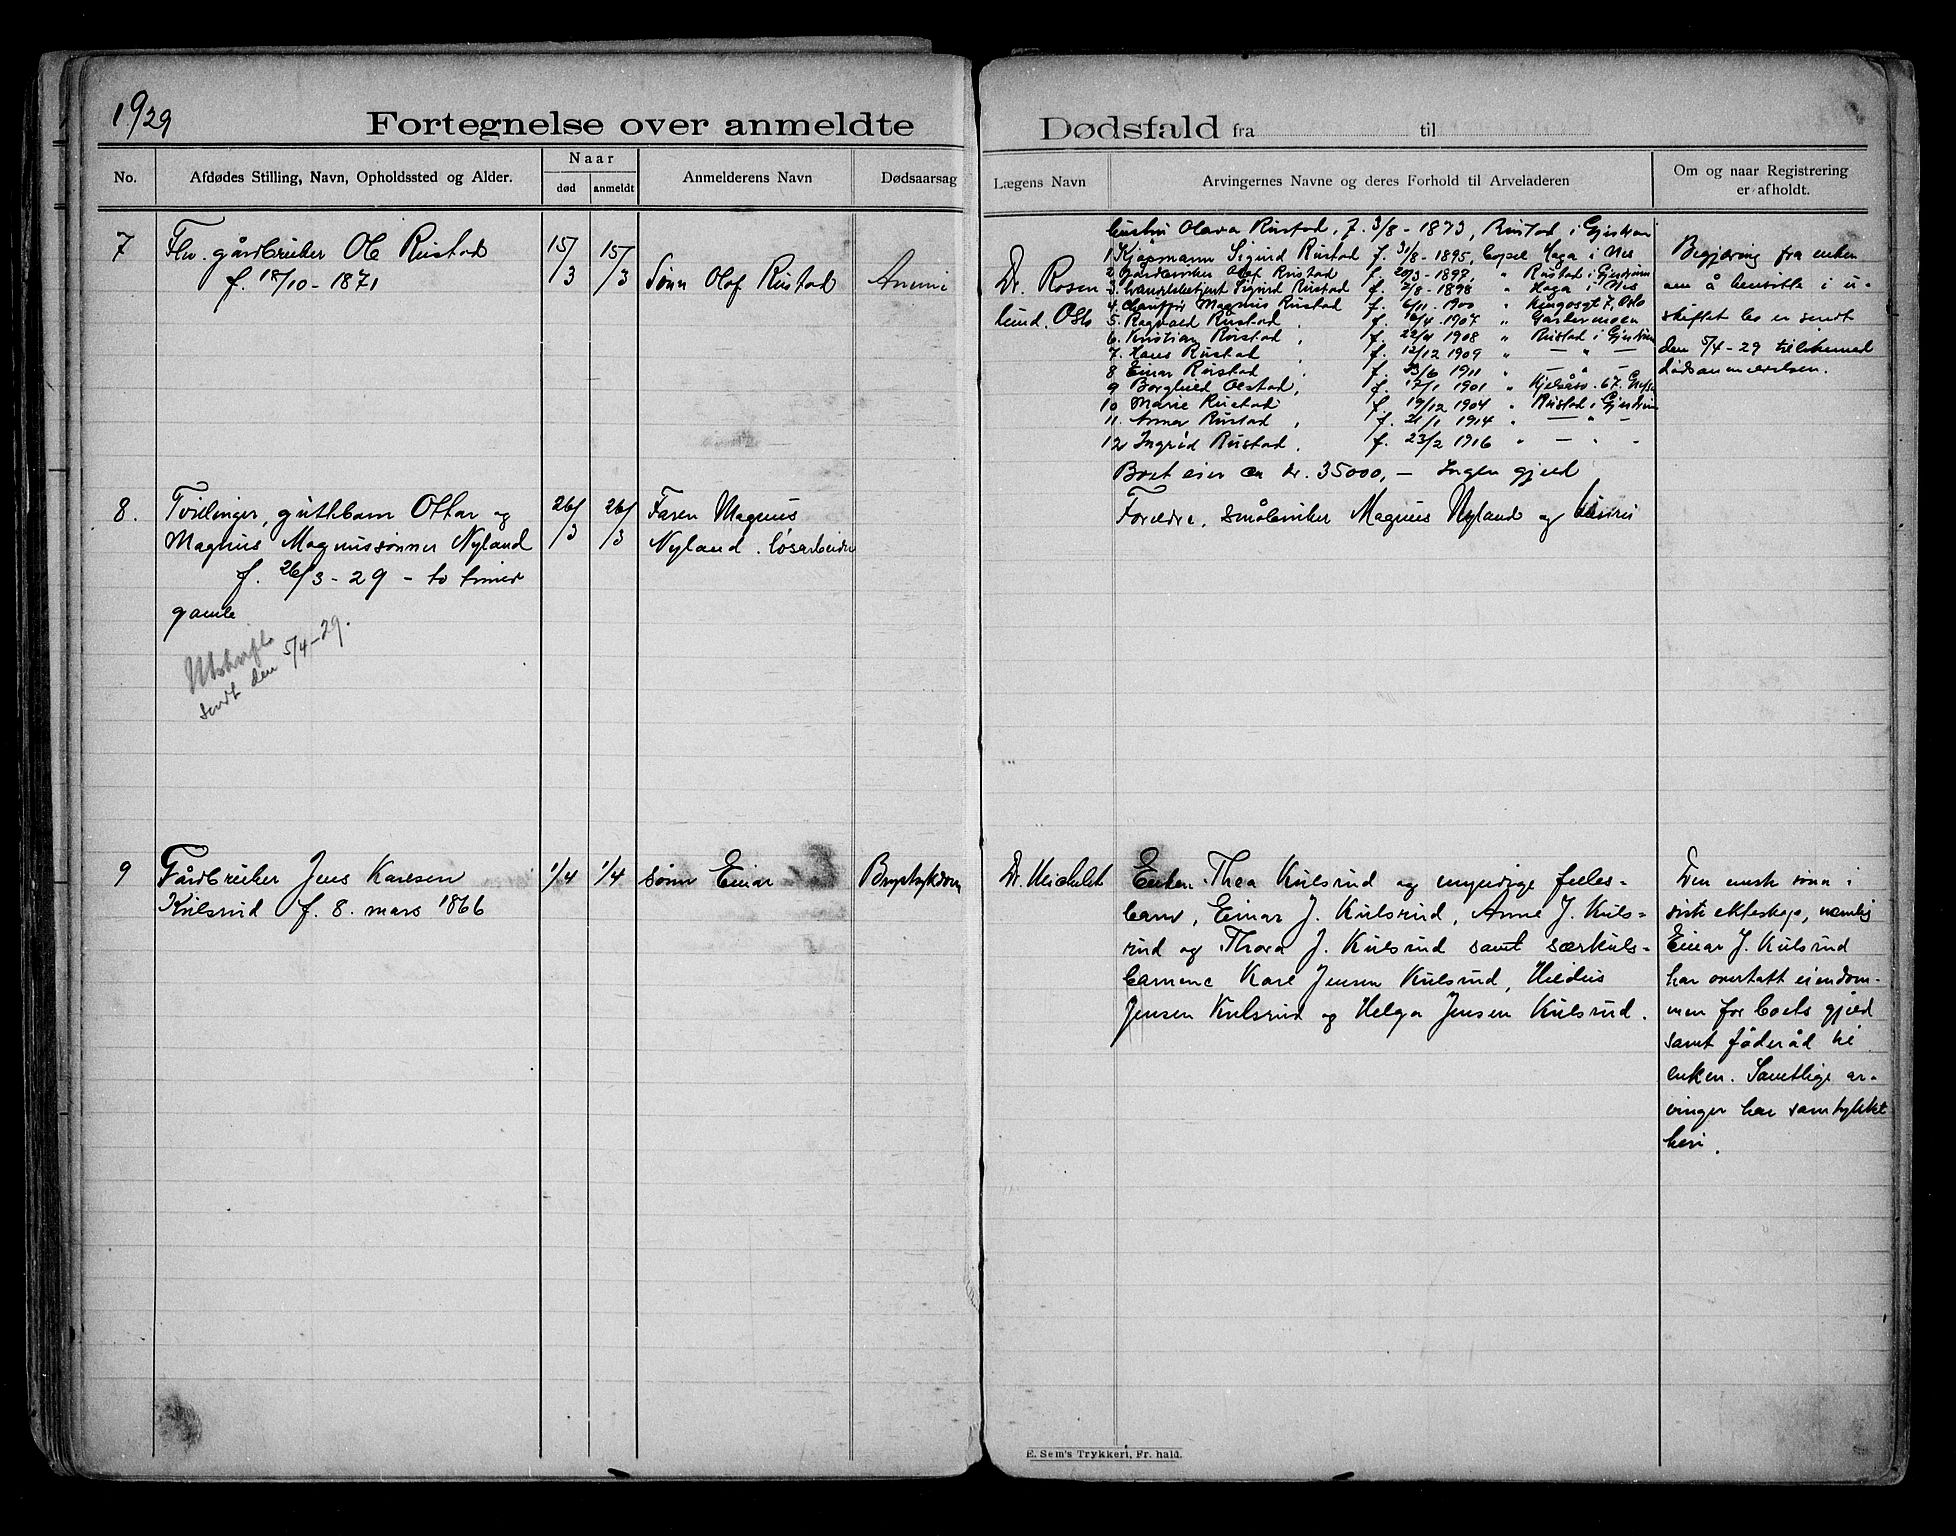 1929
Fortegnelse over anmeldte Dødsfald fra til
No.
Afdødes Stilling, Navn, Opholdssted og Alder.
Naar
død
anmeldt
Anmelderens Navn
Dødsaarsag
Lægens Navn
Arvingernes Navne og deres Forhold til Arveladeren
Om og naar Registrering
er afholdt.
7
Fhv. gårdbruker Ole Rustad
f. 18/10 - 1871
15/3
15/3
Sønn Olof Rustad
Anemi
Dr. Rosen
lund. Oslo
Hustru Olava Rustad, f. 3/8 - 1873, Rustad i Gjerdrum
1 Kjøpmann Sigurd Rustad f. 31/8 - 1895, bopel Haga i Nes
2. Gårdbruker Olof Rustad f. 20/3 - 1897 " Rustad i Gjerdrum
3. Handelsbetjent Sigurd Rustad f. 7/8 - 1898 " Haga i Nes
4. Chauffør Magnus Rustad f. 6/11 - 1900 " Kingosgt 7, Oslo
5. Ragvald Rustad, f. 10/4 - 1907 " Gardermoen
6. Kristian Rustad, f. 22/4 1908 " Rustad i Gjerdrum
7. Hans Rustad, f. 12/12 1909 " — " —
8 Einar Rustad, f. 23/6 1911 " — " —
9 Borghild Olstad, f. 17/1 1901 " Kjelsåsv. 67.
10 Marie Rustad f. 19/12 1904 " Rustad i Gjerdrum
11. Anna Rustad, f. 21/1 1914 " — " —
12 Ingrid Rustad, f. 23/2 1916 " — " -
Boet eier ca kr. 35000,- Ingen gjeld
Begjæring fra enken
om å hensitte i u-
skiftet bo er sendt
den 5/4 - 29 tillikemed
dødsanmeldelsen.
8.
Tvillinger, guttebarn Ottar og
Magnus Magnussønner Nyland
f. 26/3 - 29 - to timer
gamle
Utskrift
sendt den 5/4 - 29.
26/3
26/3
Faren Magnus
Nyland. løsarbeider
Foreldre, småbruker Magnus Nyland og hustru
9
Gårdbruker Jens Karlsen
Kulsrud f. 8. mars 1866
1/4
1/4
sønn Einar
Brystsykdom
Dr. Michelet
Enken Thea Kulsrud og myndige felles-
barn, Einar J. Kulsrud, Anne J. Kuls-
rud og Thora J. Kulsrud samt særkuls-
barnene Karl Jensen Kulsrud, Hildus
Jensen Kulsrud og Helga Jensen Kulsrud.
Den eneste sønn i
siste ekteskap, nemlig
Einar J. Kulsrud
har overtatt eiendom-
men for boets gjeld
samt føderåd til
enken. Samtlige ar-
vinger har samtykket
heri.
E. Sem's Trykkeri, Fr. hald.